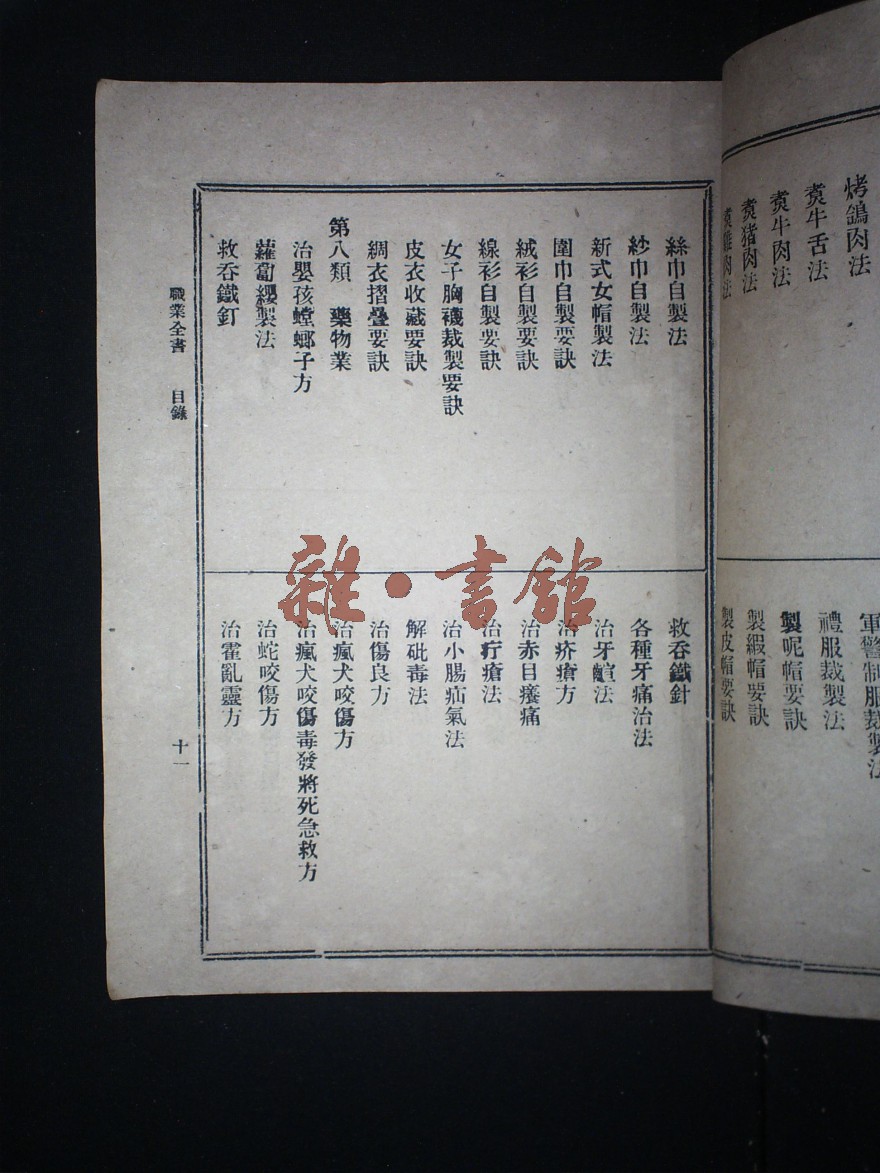 烤鴿肉法
煑牛舌法
煑牛肉法
煑猪肉法
肉法
軍警制服裁製法
禮服裁製法
製呢帽要訣
製緞帽要訣
製皮帽要訣
絲巾自製法
紗巾自製法
新式女帽製法
圍巾自製要訣
絨衫自製要訣
線衫自製要訣
女子胸襪裁製要訣
皮衣收藏要訣
綢衣摺疊要訣
第八類 藥物業
治嬰孩螳螂子方
蘿蔔纓製法
救吞鐵釘
救吞鐵針
各種牙痛治法
治牙法
治疥瘡方
治赤目癢痛
治疔瘡法
治小腸疝氣法
解砒毒法
治傷良方
治瘋犬咬傷方
治瘋犬咬傷毒發將死急救方
治蛇咬傷方
治霍亂靈方
職業全書 目錄
十一
雜·書館